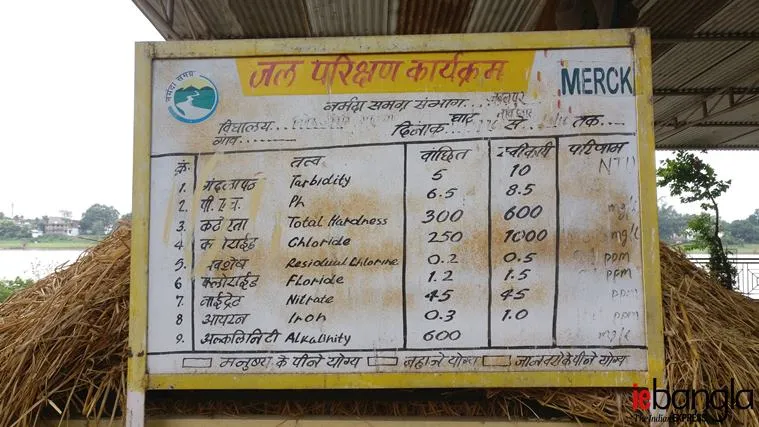 नर्मदा समग्र
जल परिक्षण कार्यक्रम
MERCK
नर्मदा समग्र संभाग जबलपुर
विद्यालय घाट
गांव दिनांक से तक
क्रं. तत्व वांछित स्वीकार्य परिणाम
1. गंदलापन Tarbidity 5 10 NTU
2. पी.एच. Ph 6.5 8.5
3. कठोरता Total Hardness 300 600 mg/l
4. क्लोराईड Chloride 250 1000 mg/l
5. अवशेष Residual Chlorine 0.2 0.5 ppm
6. फ्लोराईड Floride 1.2 1.5 PPM
7. नाईट्रेट Nitrate 45 45 PPM
8 आयरन Iron 0.3 1.0 PPM
9. अल्कलिनिटी Alkalinity 600 mg/l
मनुष्य के पीने योग्य नहाने योग्य जानवरो के पीने योग्य
ie bangla
The Indian EXPRESS